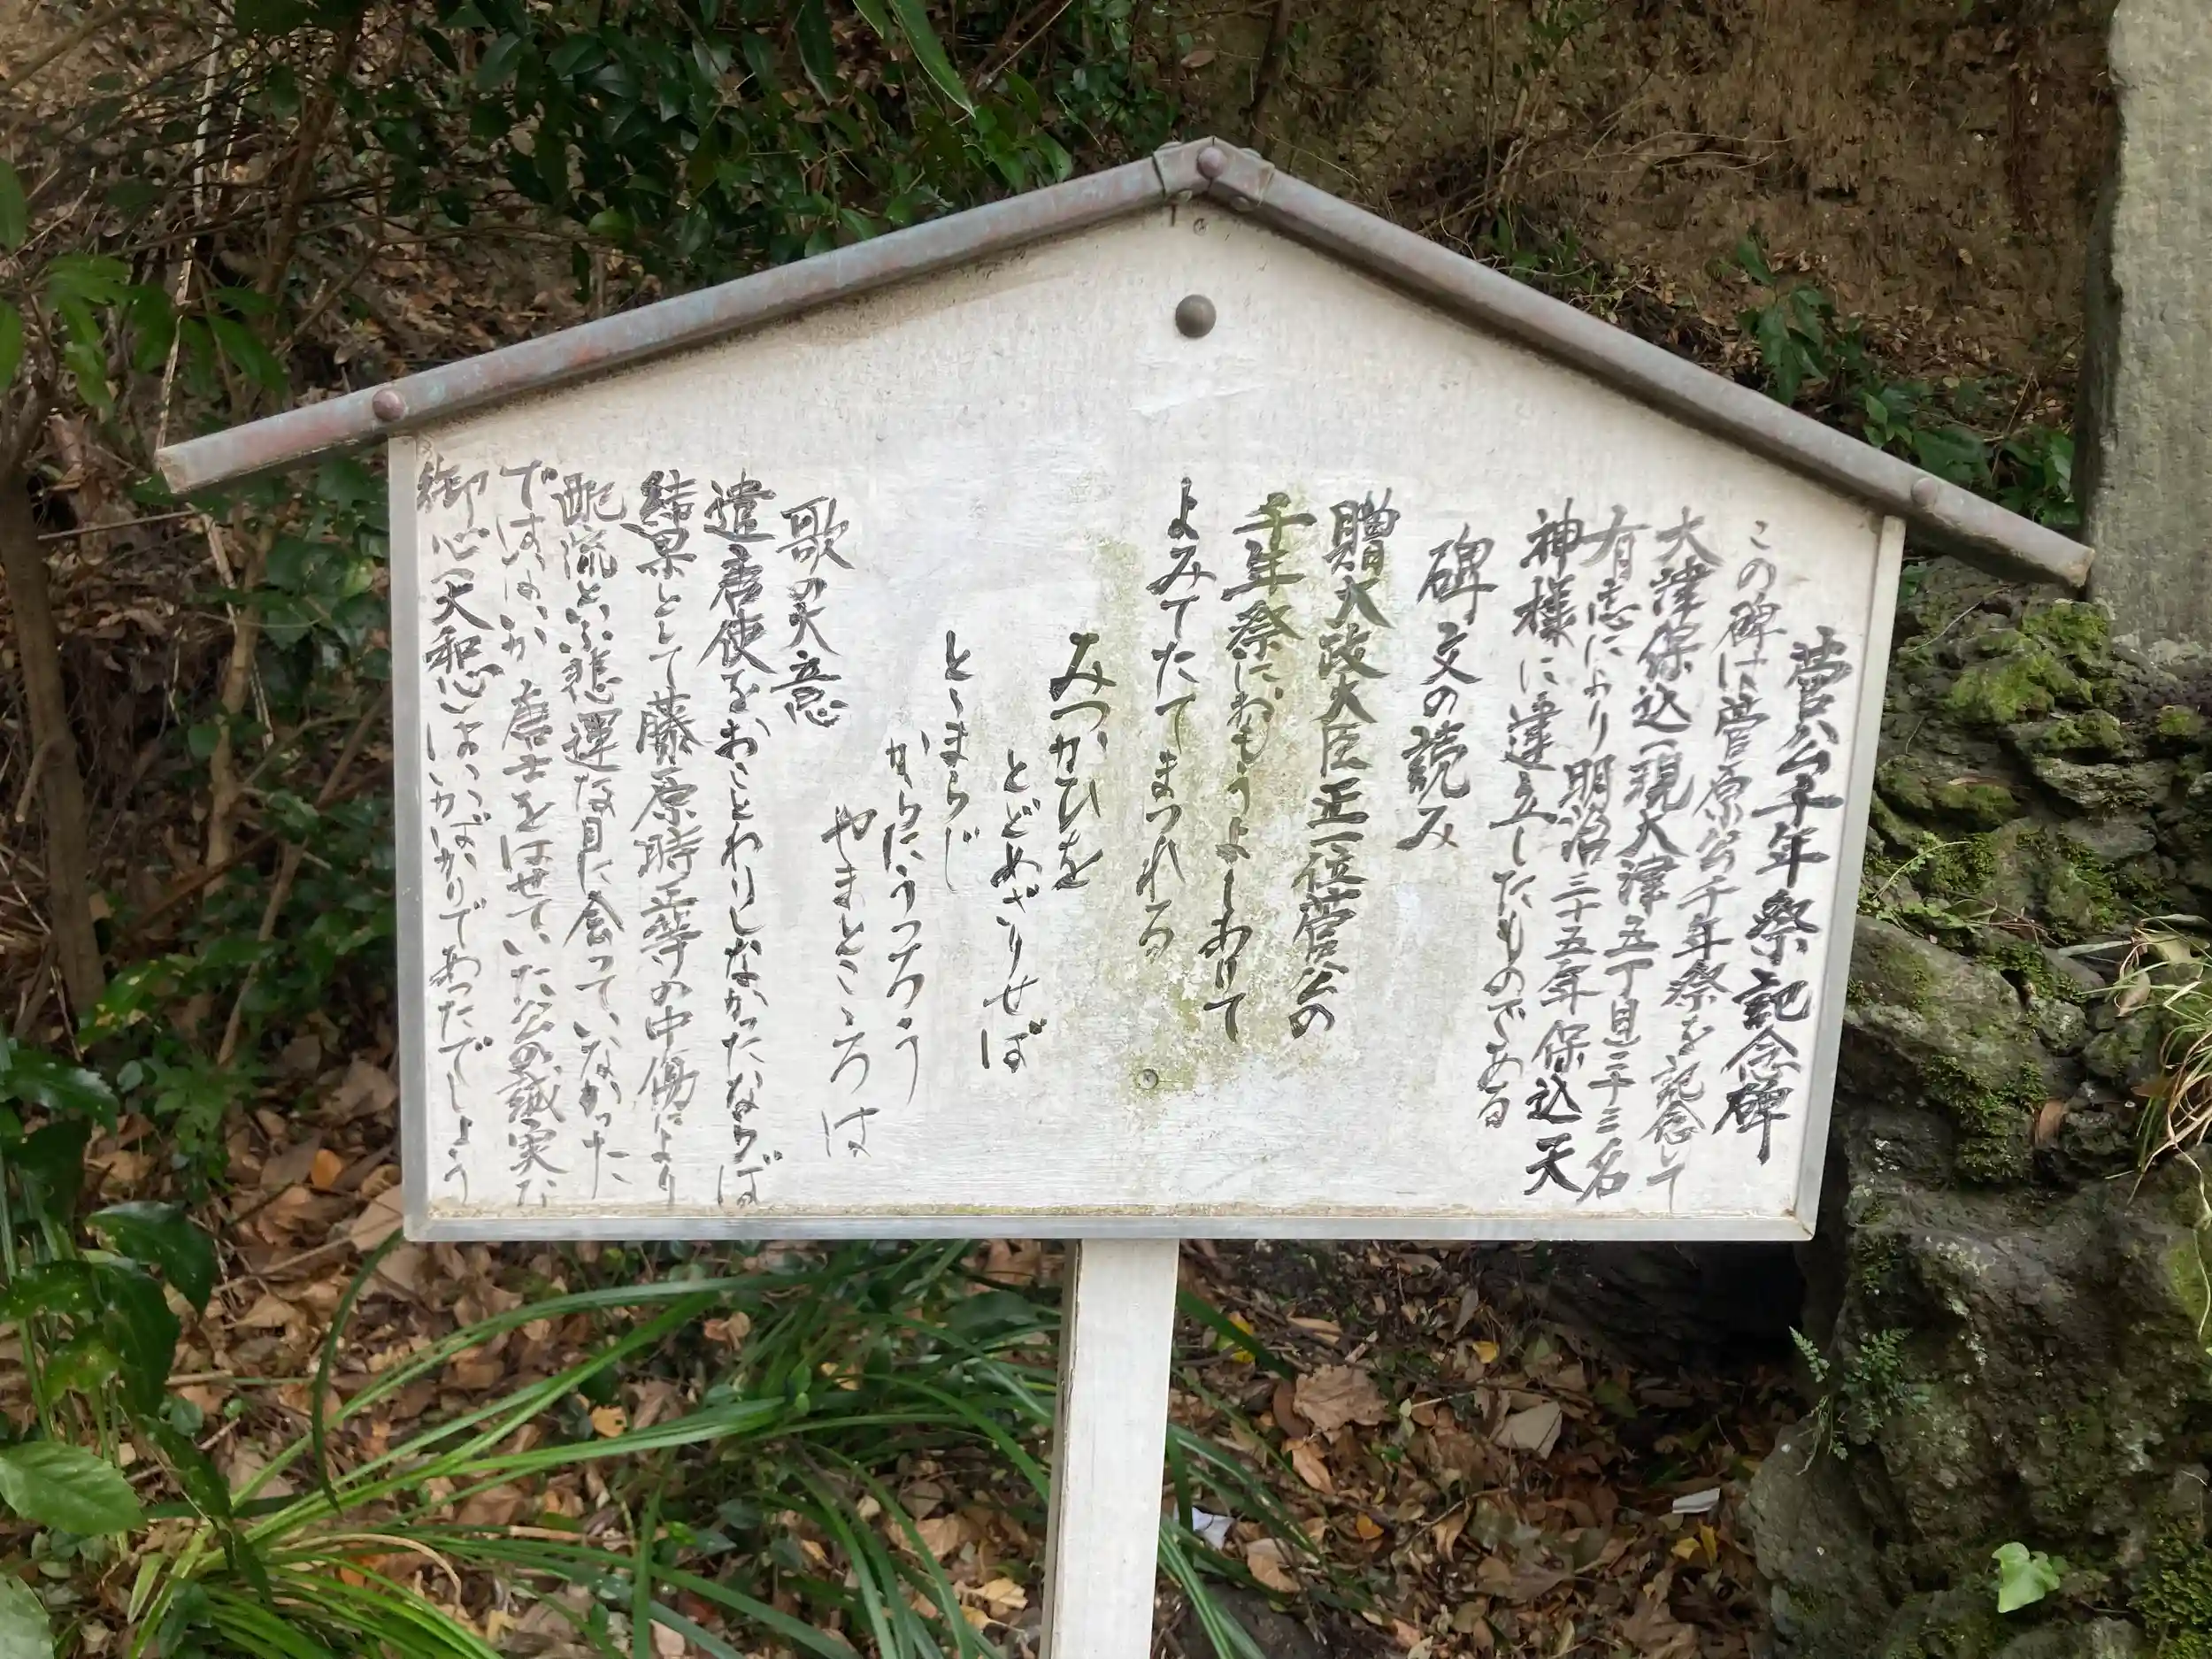 菅公千年祭記念碑
この碑は菅原公千年祭を記念して
大津保込(現大津五丁目)三十三名
有志により明治三十五年保込天
神様に建立したものである
碑文の読み
贈大政大臣正一位菅公の
千年祭におもうよしありて
よみてたてまつれる
みつかひを
とどめざりせば
とゝまらじ
からにうつろう
やまとこころは
歌の大意
遣唐使をおことわりしなかったならば
結果として藤原時平等の中傷により
配流という悲運な目に会っていなかった
ではないか 唐土をはせていた公の誠実な
御心大和心はいかばかりであったでしょう